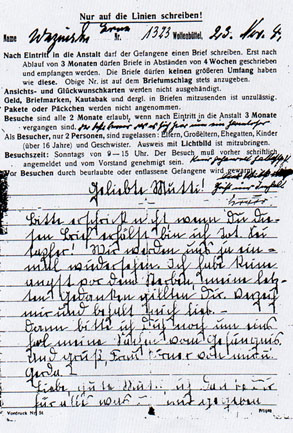 Nur auf die Linien schreiben!
Name Erna Nr. 1323 Wolfenbüttel, 23. Nov. 4
Nach Eintritt in die Anstalt darf der Gefangene einen Brief schreiben. Erst nach
Ablauf von 3 Monaten dürfen Briefe in Abständen von 4 Wochen geschrieben
und empfangen werden. Die Briefe dürfen keinen größeren Umfang haben
wie diese. Obige Nr. ist auf dem Briefumschlag stets anzugeben.
Ansichts- und Glückwunschkarten werden nicht ausgehändigt.
Geld, Briefmarken, Kautabak und dergl. in Briefen mitzusenden ist unzulässig.
Pakete oder Päckchen werden nicht angenommen.
Besuche sind alle 2 Monate erlaubt, wenn nach Eintritt in die Anstalt 3 Monate
vergangen sind.
Als Besucher, nur 2 Personen, sind zugelassen: Eltern, Großeltern, Ehegatten, Kinder
(über 16 Jahre) und Geschwister. Ausweis mit Lichtbild ist mitzubringen.
Besuchszeit: Sonntags von 9—15 Uhr. Der Besuch muß vorher schriftlich
angemeldet und vom Vorstand genehmigt sein.
Vor Besuchen durch beurlaubte oder entlassene Gefangene wird gewarnt.
Geliebte Mutti!
Bitte erschrick nicht wenn Du die-
sen Brief erhältst bin ich tot. Sei
tapfer! Wir werden uns ja ein-
mal wiedersehen. Ich habe keine
angst vor dem Sterben, meine letz-
ten Gedanken gillten Dir. Verzei
mir und behalt mich lieb.
Dann bitte ich Dich noch um eins
hol meine Sachen vom Gefängnis
und grüß Frau von mir
Gerda
Liebe, gute Mutti, ich danke Dir
für alles was mir gegeben
Vordruck Nr. 51